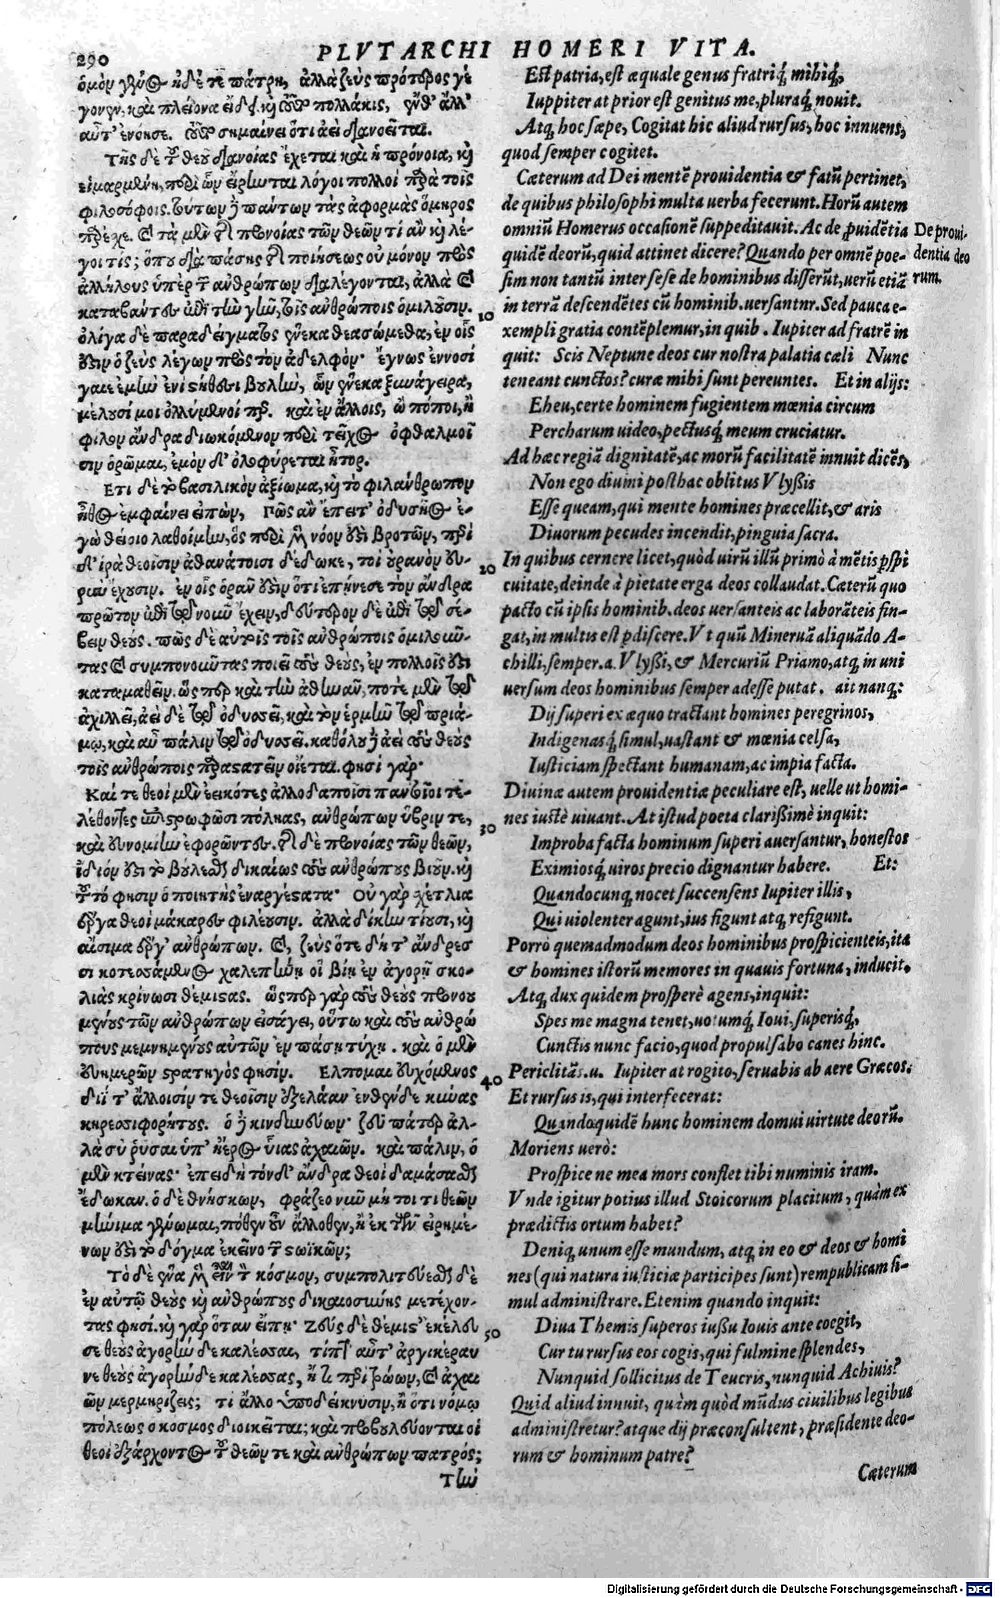 290
PLVTARCHI HOMERI VITA.
ὁμὸν γένος ἠδ᾽ ἐ τε πάτρη, ἀλλὰ ζεὺς πρότερος γέ
γονεν, καὶ πλείονα εἴδη. καὶ τὸ πολλάκις, ἔνθ᾽ ἄλλ᾽
αὖτ᾽ ἐνόησε. τοῦτο σημαίνει ὅτι ἀεὶ διανοεῖται.
Τῆς δὲ τοῦ θεοῦ διανοίας ἔχεται καὶ ἡ πρόνοια, καὶ
εἱμαρμένη, περὶ ὧν εἴρηνται λόγοι πολλοὶ παρὰ τοῖς
φιλοσόφοις. τούτων δὲ πάντων τὰς ἀφορμὰς ὅμηρος
παρέχε. καὶ τὰ μὲν περὶ προνοίας τῶν θεῶν τί ἂν καὶ λέ-
γοι τίς; ὅπου διὰ πάσης τῆς ποιήσεως οὐ μόνον πρὸς
ἀλλήλους ὑπὲρ τῶν ἀνθρώπων διαλέγονται, ἀλλὰ καὶ
καταβάντες ἐπὶ τὴν γῆν, τοῖς ἀνθρώποις ὁμιλοῦσιν.
ὀλίγα δὲ παραδείγματος ἕνεκα θεασώμεθα, ἐν οἷς
ἐστιν ὁ ζεὺς λέγων πρὸς τὸν ἀδελφόν· ἔγνως ἐννοσί
γαιε ἐμὴν ἐνὶ στήθεσι βουλὴν, ὧν ἕνεκα ξυνάγειρα,
μέλουσί μοι ὀλλύμενοί περ. καὶ ἐν ἄλλοις, ὢ πόποι, ἦ
φίλον ἄνδρα διωκόμενον περὶ τεῖχος ὀφθαλμοῖ
σιν ὁρῶμαι, ἐμὸν δ᾽ ὀλοφύρεται ἦτορ.
Ετι δὲ τὸ βασιλικὸν ἀξίωμα, καὶ τὸ φιλάνθρωπον
ἦθος ἐμφαίνει εἰπὼν, Πῶς ἂν ἔπειτ᾽ ὀδυσῆος ἐ-
γὼ θείοιο λαθοίμην, ὃς περὶ μὲν νόον ἐστὶ βροτῶν, περὶ
δ᾽ ἱρὰ θεοῖσιν ἀθανάτοισι δέδωκε, τοὶ οὐρανὸν εὐ-
ρὺν ἔχουσιν. ἐν οἷς ὁρᾶν ἐστιν ὅτι ἐπήνεσε τὸν ἄνδρα
πρῶτον ἐπὶ τῷ νοῦν ἔχειν, δεύτερον δὲ ἐπὶ τῷ σέ-
βειν θεούς. πῶς δὲ αὐτοῖς τοῖς ἀνθρώποις ὁμιλοῦν-
τας καὶ συμπονοῦντας ποιεῖ τοὺς θεοὺς, ἐν πολλοῖς ἐστι
καταμαθεῖν. ὥσπερ καὶ τὴν ἀθηνᾶν, ποτὲ μὲν τῷ
ἀχιλλεῖ, ἀεὶ δὲ τῷ ὀδυσσεῖ, καὶ τὸν ἑρμῆν τῷ πριά-
μῳ, καὶ αὖ πάλιν τῷ ὀδυσσεῖ. καθόλου δὲ ἀεὶ τοὺς θεοὺς
τοῖς ἀνθρώποις παραστατεῖν οἴεται. φησὶ γάρ·
Καί τε θεοὶ μὲν ἐεικότες ἀλλοδαποῖσι παντοῖοι τε-
λέθοντες ἐπιστρωφῶσι πόληας, ἀνθρώπων ὕβριν τε,
καὶ εὐνομίην ἐφορῶντες. τῆς δὲ προνοίας τῶν θεῶν,
ἴδιόν ἐστι τὸ βούλεσθαι δικαίως τοὺς ἀνθρώπους βιοῦν. καὶ
τοῦτό φησιν ὁ ποιητὴς ἐναργέστατα· Οὐ γὰρ χέτλια
ἔργα θεοὶ μάκαρες φιλέουσιν. ἀλλὰ δίκην τίουσι, καὶ
αἴσιμα ἔργ᾽ ἀνθρώπων. καὶ, ζεὺς ὅτε δή τ᾽ ἄνδρεσ
σι κοτεσσάμενος χαλεπήνῃ οἳ βίῃ ἐν ἀγορῇ σκο-
λιὰς κρίνωσι θέμιστας. ὥσπερ γὰρ τοὺς θεοὺς προνοου
μένους τῶν ἀνθρώπων εἰσάγει, οὕτω καὶ τοὺς ἀνθρώ
πους μεμνημένους αὐτῶν ἐν πάσῃ τύχῃ. καὶ ὁ μὲν
εὐημερῶν στρατηγός φησίν. Ελπομαι εὐχόμενος
διΐ τ᾽ ἄλλοισίν τε θεοῖσιν ἐξελάαν ἐνθένδε κύνας
κηρεσσιφορήτους. ὁ δὲ κινδυνεύων· ζεῦ πάτερ ἀλ-
λὰ σὺ ῥῦσαι ὑπ᾽ ἠέρος υἷας ἀχαιῶν. καὶ πάλιν, ὁ
μὲν κτείνας· ἐπειδὴ τόνδ᾽ ἄνδρα θεοὶ δαμάσασθαι
ἔδωκαν. ὁ δὲ θνήσκων, φράζεο νῦν μή τοι τι θεῶν
μήνιμα γένωμαι, πόθεν οὖν ἄλλοθεν, ἢ ἐκ τῶν εἰρημέ-
νων ἐστὶ τὸ δόγμα ἐκεῖνο τῶν στωϊκῶν;
Τὸ δὲ ἕνα μὲν εἶναι τὸν κόσμον, συμπολιτεύεσθαι δὲ
ἐν αὐτῷ θεοὺς καὶ ἀνθρώπους δικαιοσύνης μετέχον-
τας φησί. καὶ γὰρ ὅταν εἴπῃ· Ζεὺς δὲ θέμιστ᾽ ἐκέλευ
σε θεοὺς ἀγορὴν δὲ καλέσσαι, τίπτ᾽ αὖτ᾽ ἀργικέραυν
νε θεοὺς ἀγορὴν δὲ καλέσσας, ἤ τι περὶ τρώων, καὶ ἀχαι
ῶν μερμηρίζεις; τί ἄλλο ὑποδείκνυσιν, ἢ ὅτι νόμῳ
πόλεως ὁ κόσμος διοικεῖται; καὶ προβουλεύονται οἱ
θεοὶ ἐξάρχοντος τοῦ θεῶν τε καὶ ἀνθρώπων πατρός;
Τὴν
10
20
30
40
50
Est patria, est æquale genus fratriq́; mihiq́;,
Iuppiter at prior est genitus me, pluraq́; nouit.
Atq; hoc sæpe, Cogitat hic aliud rursus, hoc innuens,
quod semper cogitet.
Cæterum ad Dei mentē prouidentia & fatū pertinet,
de quibus philosophi multa uerba fecerunt. Horū autem
omniū Homerus occasionē suppeditauit. Ac de ꝓuidētia
quidē deorū, quid attinet dicere? Quando per omnē poe-
sim non tantū inter sese de hominibus disserūt, uerū etiā
in terrā descendētes cū hominib. uersantur. Sed pauca e-
xempli gratia contēplemur, in quib. Iupiter ad fratrē in
quit: Scis Neptune deos cur nostra palatia cæli Nunc
teneant cunctos? curæ mihi sunt pereuntes. Et in alijs:
Eheu, certe hominem fugientem mœnia circum
Percharum uideo, pectusq́; meum cruciatur.
Ad hæc regiā dignitatē, ac morū facilitatē innuit dicēs,
Non ego diuini posthac oblitus Vlyßis
Esse queam, qui mente homines præcellit, & aris
Diuorum pecudes incendit, pinguia sacra.
In quibus cernere licet, quòd uirū illū primò à mētis ꝑspi
cuitate, deinde à pietate erga deos collaudat. Cæterū quo
pacto cū ipsis hominib. deos uersanteis ac laborāteis fin-
gat, in multis est ꝑdiscere. Vt quū Mineruā aliquādo A-
chilli, semper.a. Vlyßi, & Mercuriū Priamo, atq; in uni
uersum deos hominibus semper adesse putat. ait nanq;:
Dij superi ex æquo tractant homines peregrinos,
Indigenasq́; simul, uastant & mœnia celsa,
Iusticiam spectant humanam, ac impia facta.
Diuinæ autem prouidentiæ peculiare est, uelle ut homi-
nes iustè uiuant. At istud poeta clarißimè inquit:
Improba facta hominum superi auersantur, honestos
Eximiosq́; uiros precio dignantur habere. Et:
Quandocunq; nocet succensens Iupiter illis,
Qui uiolenter agunt, ius figunt atq; refigunt.
Porrò quemadmodum deos hominibus prospicienteis, ita
& homines istorū memores in quauis fortuna, inducit.
Atq; dux quidem prosperè agens, inquit:
Spes me magna tenet, uotumq́; Ioui, superisq́;,
Cunctis nunc facio, quod propulsabo canes hinc.
Periclitās.u. Iupiter at rogito, seruabis ab aere Græcos:
Et rursus is, qui interfecerat:
Quandoquidē hunc hominem domui uirtute deorū.
Moriens uerò:
Prospice ne mea mors conflet tibi numinis iram.
Vnde igitur potius illud Stoicorum placitum, quàm ex
prædictis ortum habet?
Deniq; unum esse mundum, atq; in eo & deos & homi
nes (qui natura iusticiæ participes sunt) rempublicam si-
mul administrare. Etenim quando inquit:
Diua Themis superos iussu Iouis ante coegit,
Cur tu rursus eos cogis, qui fulmine splendes,
Nunquid sollicitus de Teucris, nunquid Achiuis?
Quid aliud innuit, quàm quòd mūdus ciuilibus legibus
administretur? atque dij præconsultent, præsidente deo-
rum & hominum patre?
Cæterum
De proui-
dentia deo
rum.
Digitalisierung gefördert durch die Deutsche Forschungsgemeinschaft - DFG